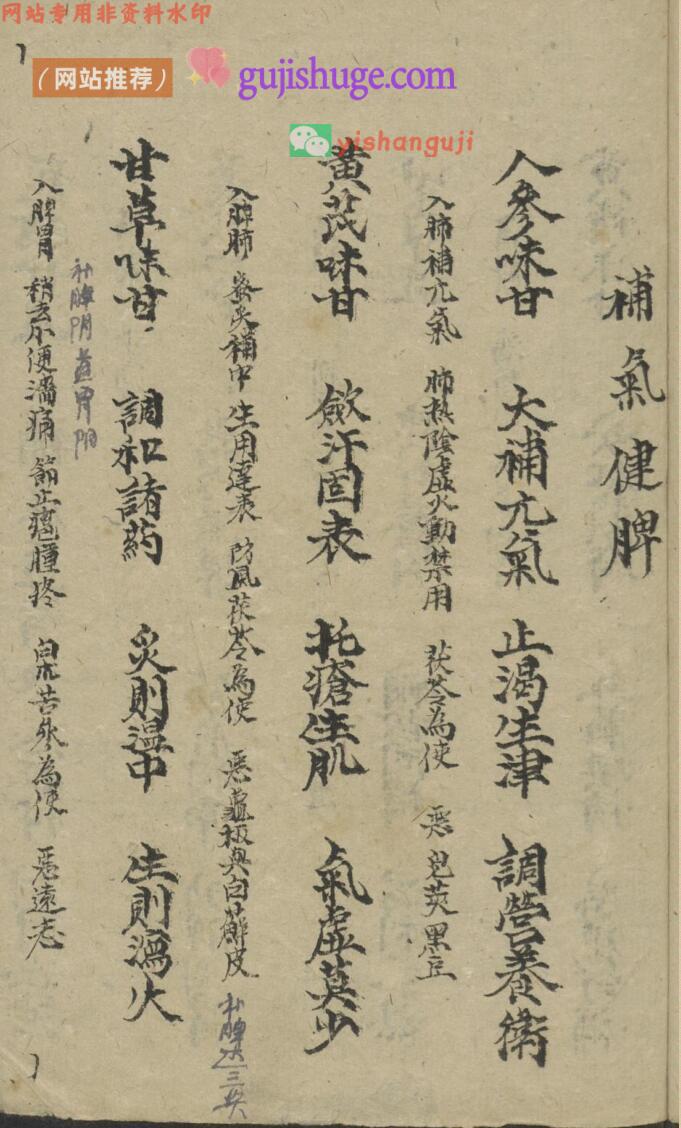 网站专用非资料水印
（网站推荐） gujishuge.com
yishanguji
補氣健脾
人參味甘 大補元氣 止渴生津 調營養衛
入肺補元氣 肺熱陰虛火動禁用 茯苓為使 惡皂莢黑豆
黃芪味甘 斂汗固表 托瘡生肌 氣虛莫少
入脾肺 蜜炙補中 生用達表 防風茯苓為使 惡龜板與白蘚皮
補脾
甘草味甘 調和諸药 炙則溫中 生則瀉火
補脾阴益胃阴
入脾胃 稍去小便濇痛 節止瘡腫疼 苦參為使 惡遠志